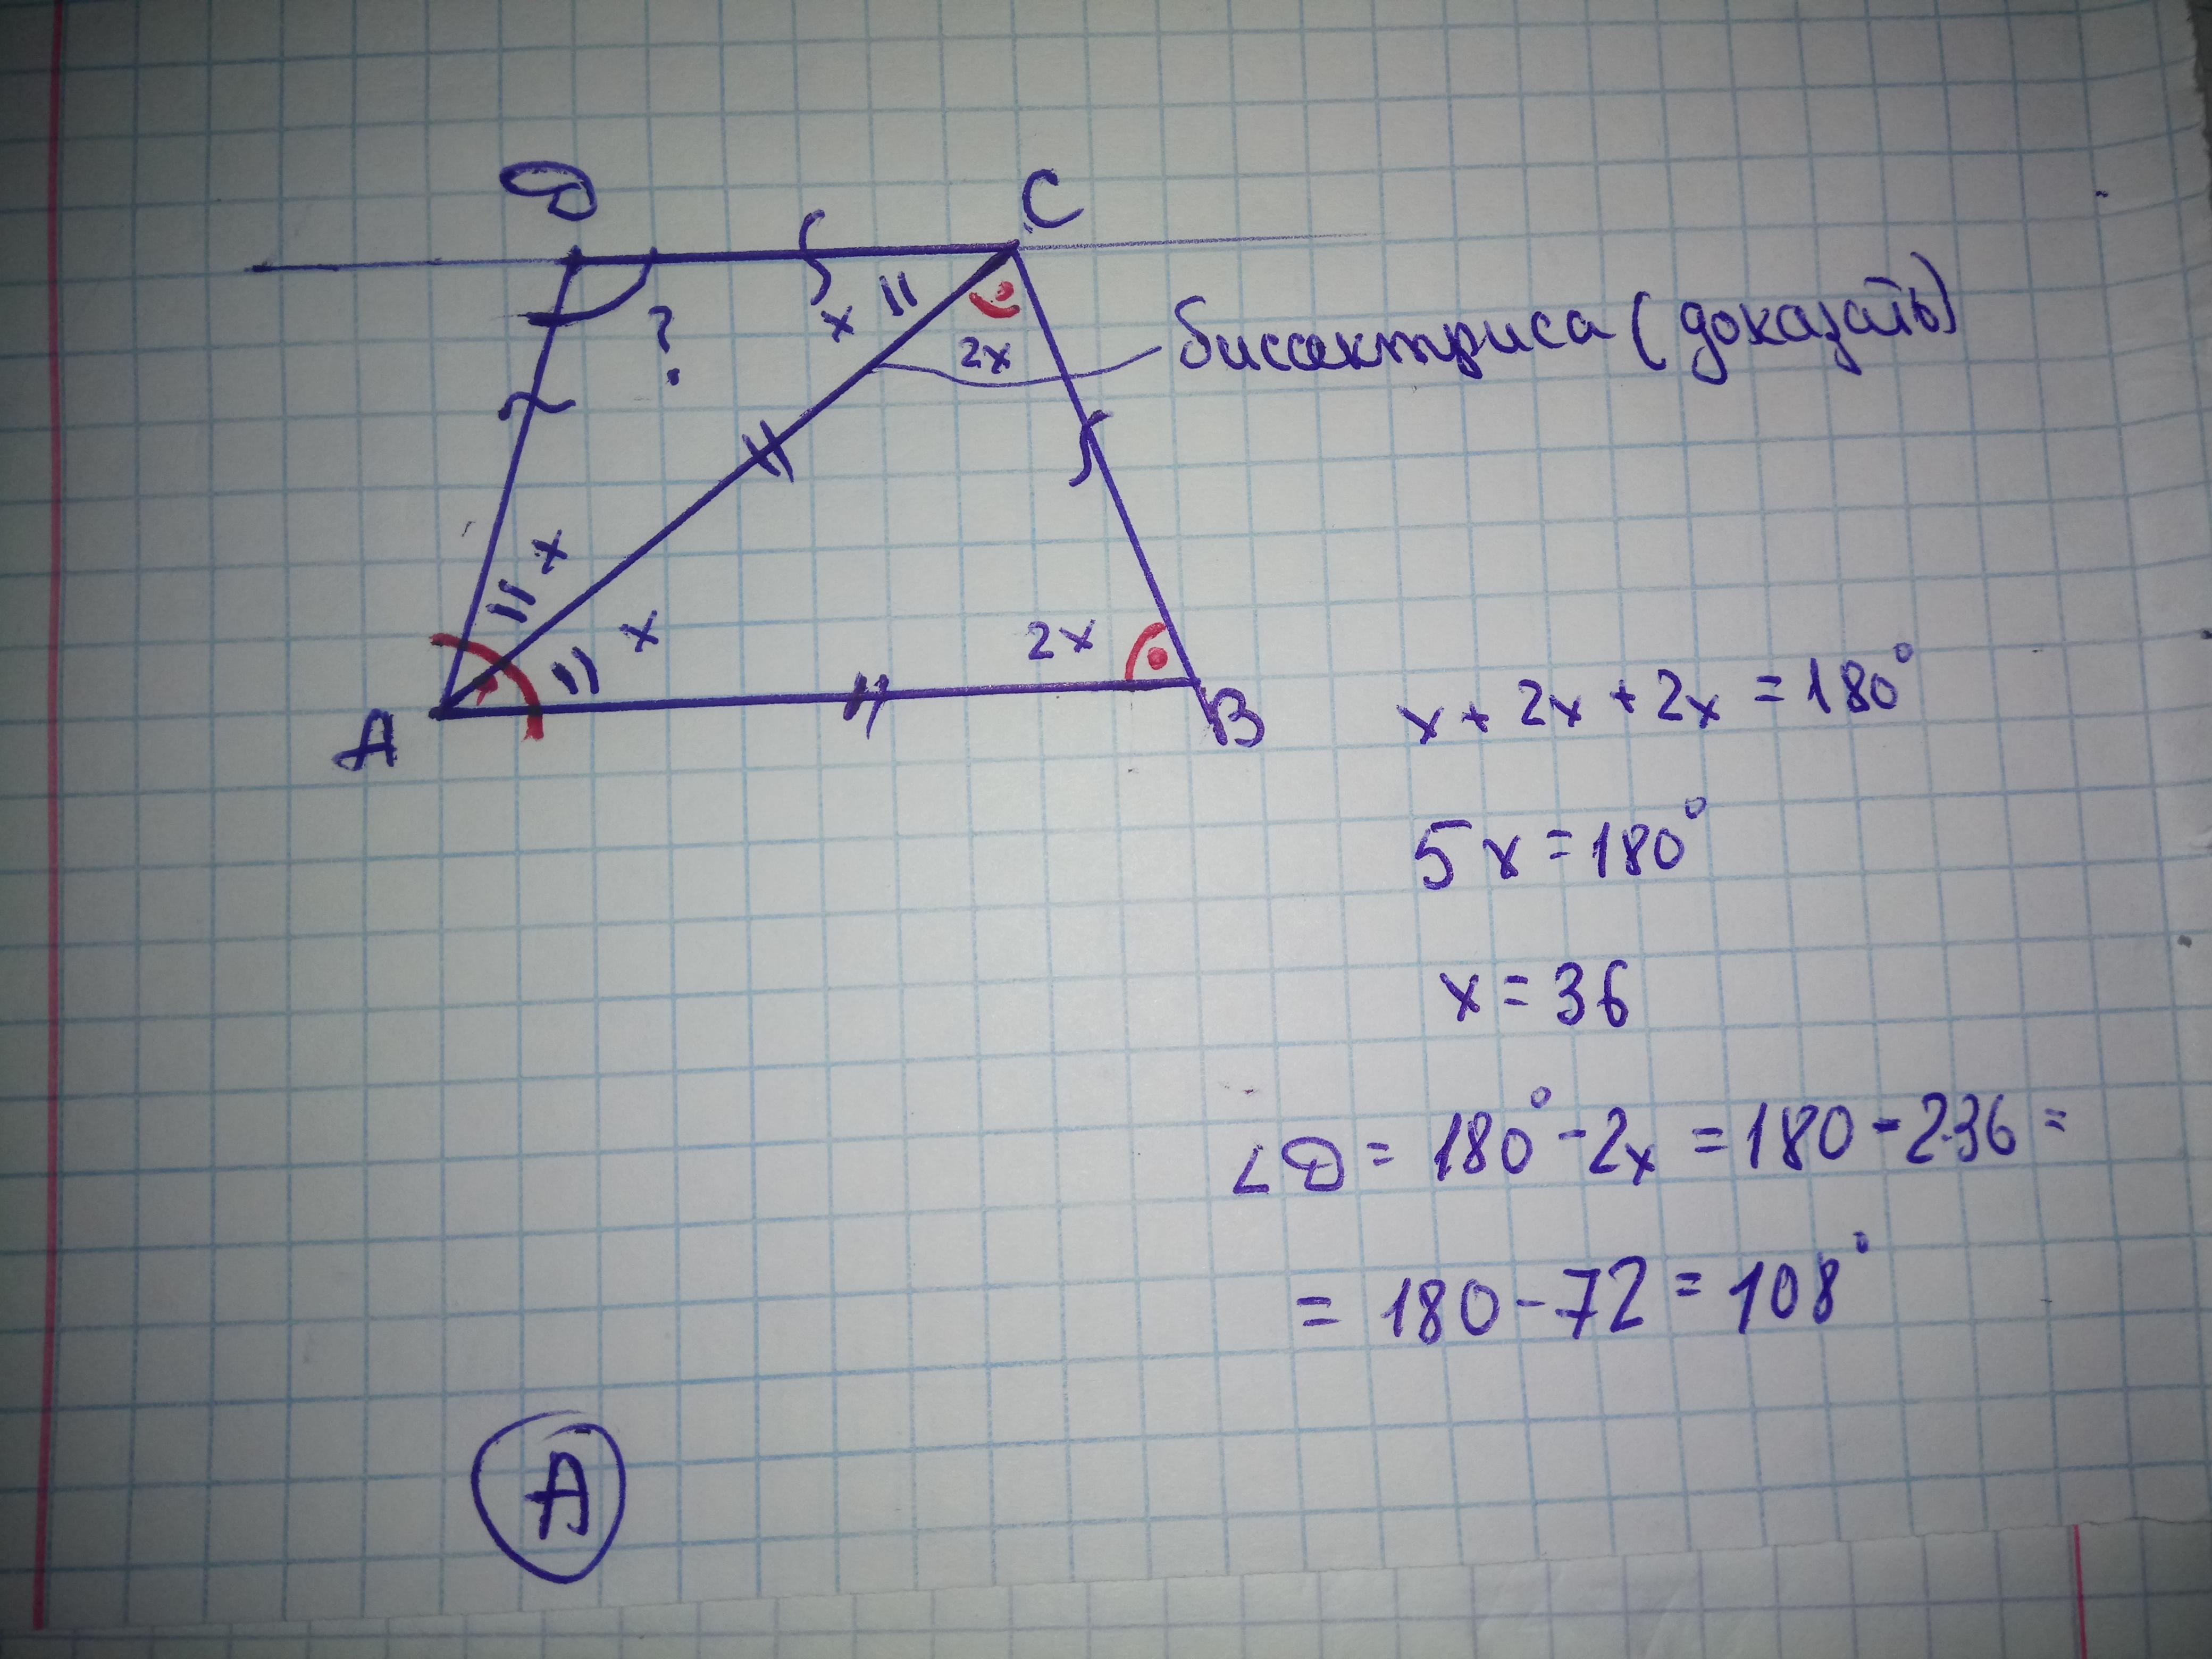 D
C
?
x
2x
биссектриса (доказать)
x
x
2x
A
B
x + 2x + 2x = 180°
5x = 180°
x = 36
∠D = 180° - 2x = 180 - 2·36 =
= 180 - 72 = 108°
A